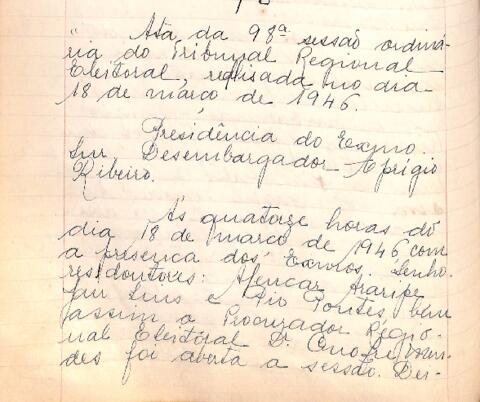 Ata da 98ª sessão ordiná-
ria do Tribunal Regional
Eleitoral, realisada no dia
18 de março de 1946.
Presidência do Exmo.
Snr. Desembargador Aprigio
Ribeiro.
Ás quatorze horas do
dia 18 de março de 1946 com
a presença dos Exmos. Senho-
res doutores: Alencar Araripe,
Luis e Pio Pontes, bem
assim o Procurador Regio-
nal Eleitoral Dr. Onofre Men-
des foi aberta a sessão. Dei-